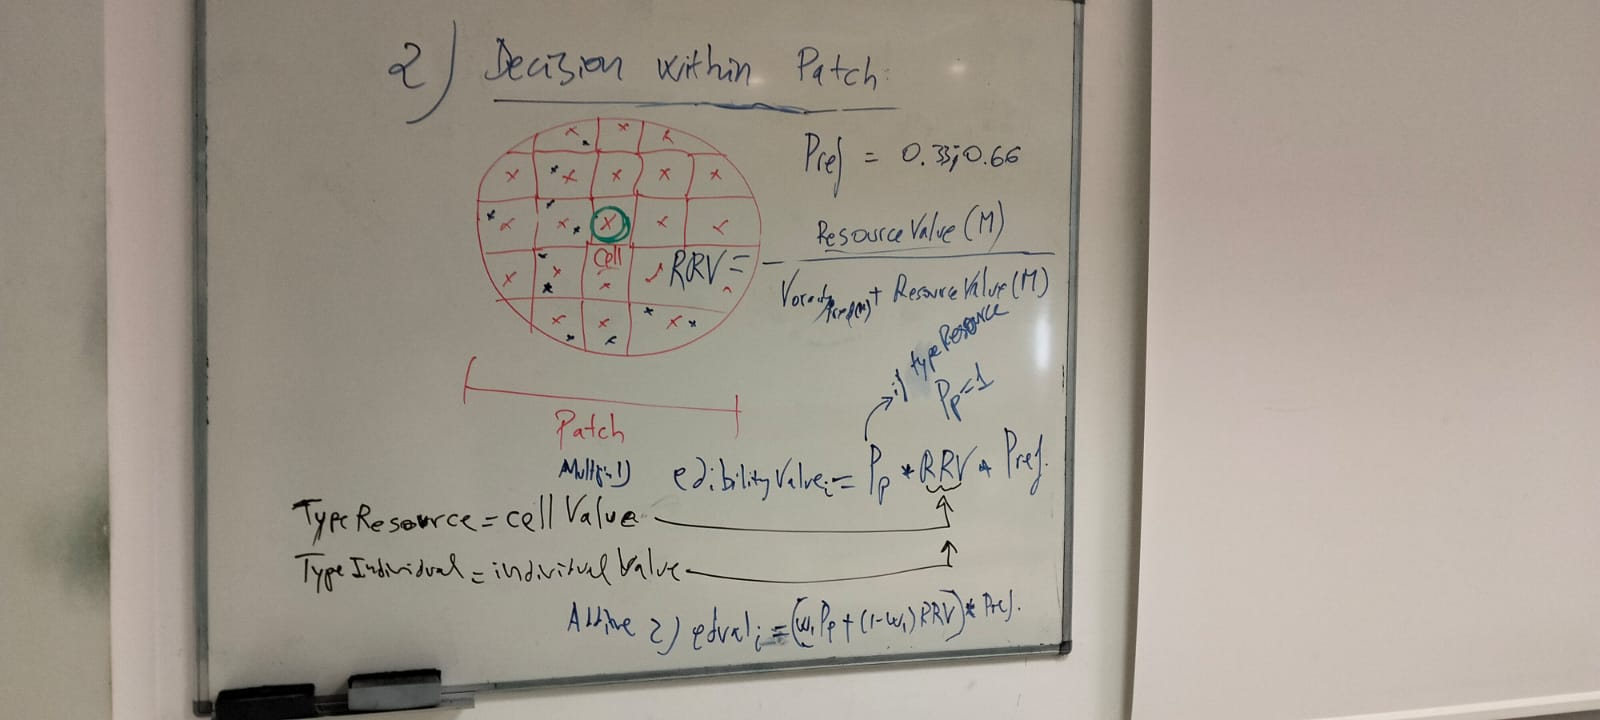 2) Decision within Patch:
Pref = 0.33;0.66
cell
RRV = ResourceValue (M)
+ ResourceValue (M)
Patch
if typeResource
Pp=1
1) edibilityValue i = Pp * RRV * Pref.
TypeResource = cell Value
TypeIndividual = individual Value
Additive 2) edval i = (w1 Pp + (1-w1) RRV) * Pref.